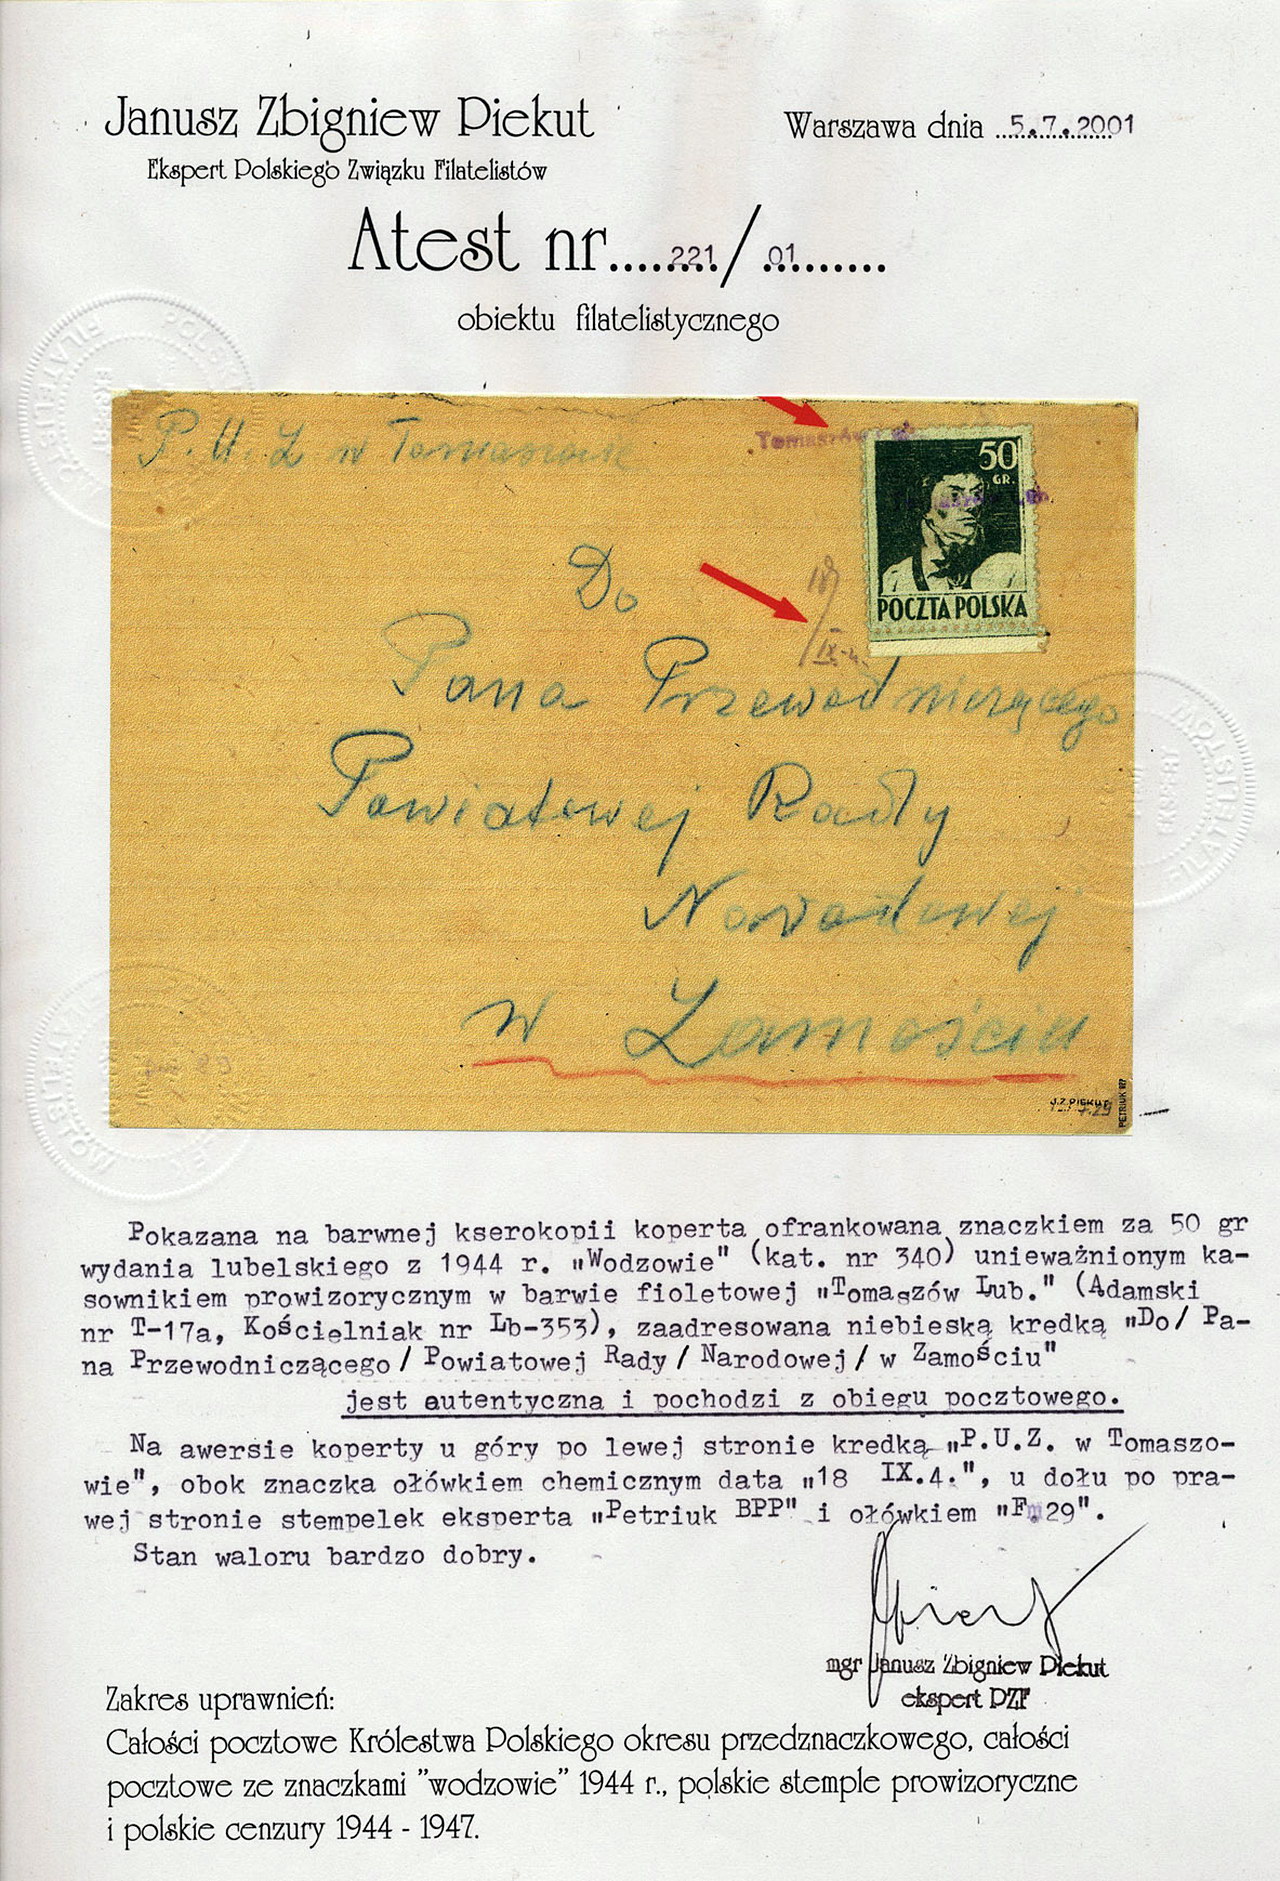 Janusz Zbigniew Piekut
Ekspert Polskiego Związku Filatelistów
Warszawa dnia 5.7.2001
Atest nr 221/01
obiektu filatelistycznego
P. U. Z w Tomaszowie
Tomaszów Lub.
50
GR.
POCZTA POLSKA
18/IX-4.
Do
Pana Przewodniczącego
Powiatowej Rady
Narodowej
w Zamościu
J.Z.PIEKUT
PETRIUK
Pokazana na barwnej kserokopii koperta ofrankowana znaczkiem za 50 gr
wydania lubelskiego z 1944 r. "Wodzowie" (kat. nr 340) unieważnionym ka-
sownikiem prowizorycznym w barwie fioletowej "Tomaszów Lub." (Adamski
nr T-17a, Kościelniak nr Lb-353), zaadresowana niebieską kredką "Do/ Pa-
na Przewodniczącego/ Powiatowej Rady/ Narodowej/ w Zamościu"
jest autentyczna i pochodzi z obiegu pocztowego.
Na awersie koperty u góry po lewej stronie kredką "P.U.Z. w Tomaszo-
wie", obok znaczka ołówkiem chemicznym data "18 IX.4.", u dołu po pra-
wej stronie stempelek eksperta "Petriuk BPP" i ołówkiem "Fm29".
Stan waloru bardzo dobry.
mgr Janusz Zbigniew Piekut
ekspert PZF
Zakres uprawnień:
Całości pocztowe Królestwa Polskiego okresu przedznaczkowego, całości
pocztowe ze znaczkami "wodzowie" 1944 r., polskie stemple prowizoryczne
i polskie cenzury 1944 - 1947.